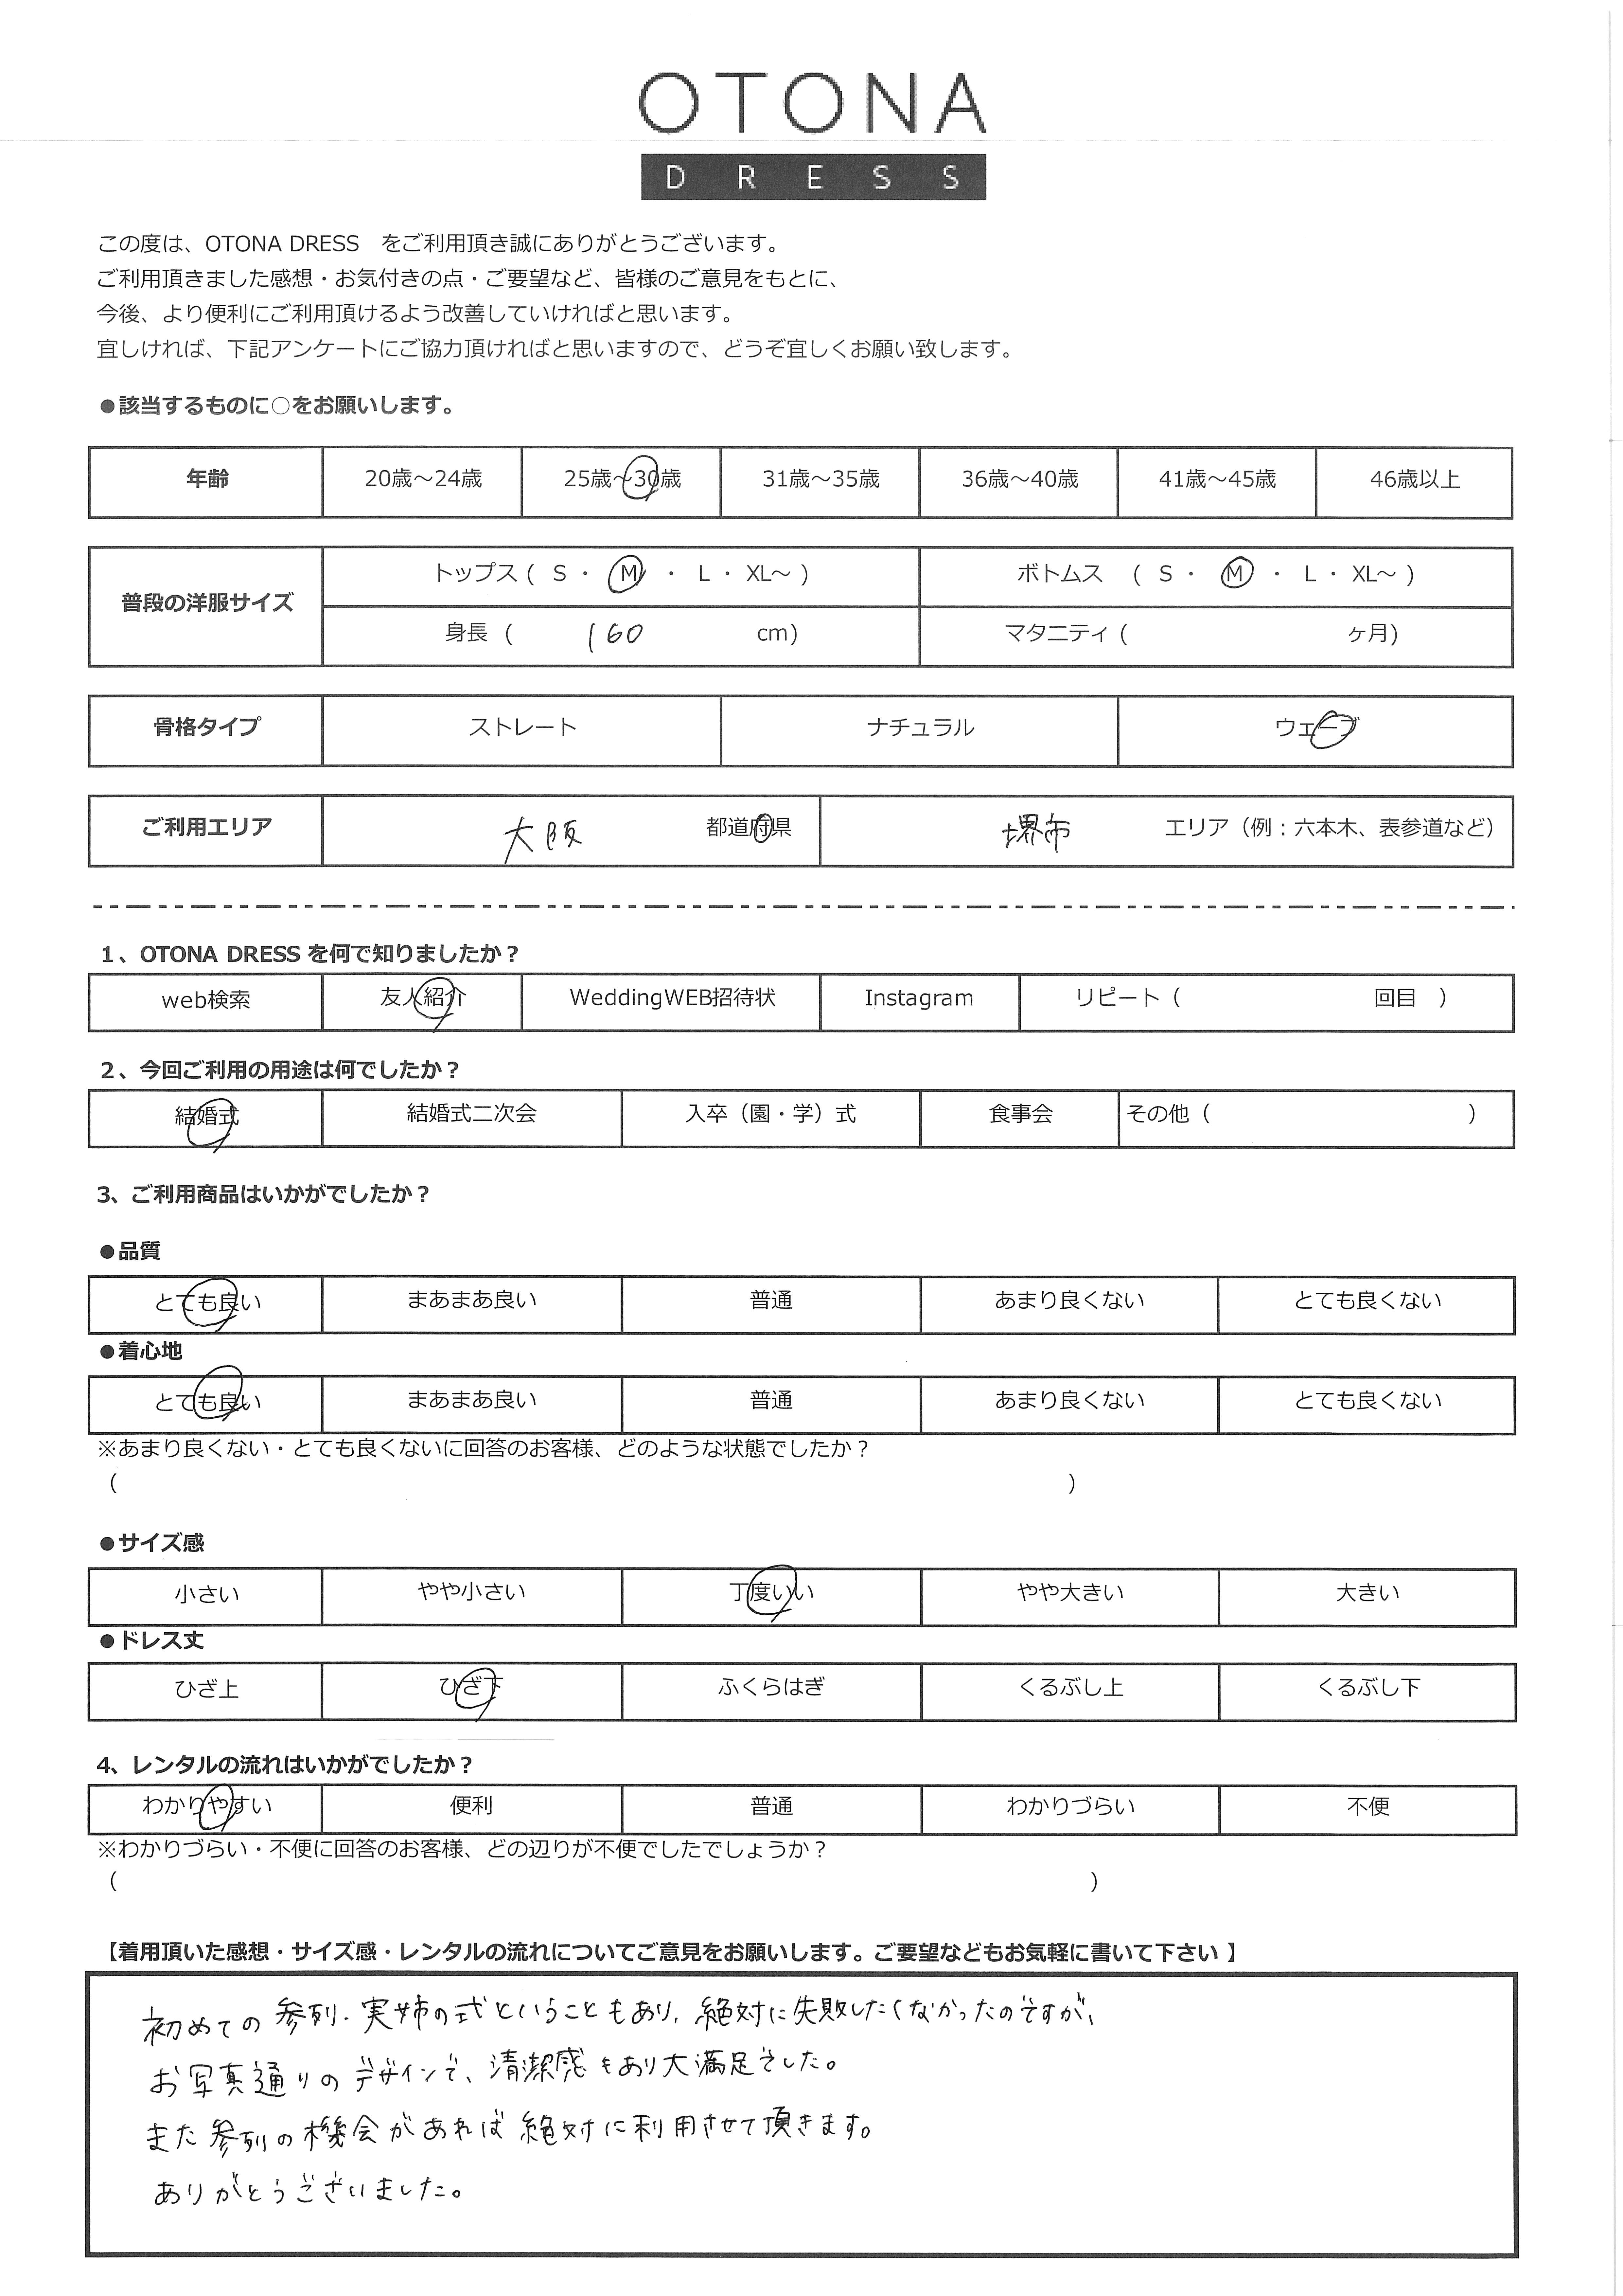 OTONA
DRESS
この度は、OTONA DRESS　をご利用頂き誠にありがとうございます。
ご利用頂きました感想・お気付きの点・ご要望など、皆様のご意見をもとに、
今後、より便利にご利用頂けるよう改善していければと思います。
宜しければ、下記アンケートにご協力頂ければと思いますので、どうぞ宜しくお願い致します。
●該当するものに○をお願いします。
年齢 20歳～24歳 25歳～30歳 31歳～35歳 36歳～40歳 41歳～45歳 46歳以上
普段の洋服サイズ
トップス（ S ・ M ・ L ・ XL～ ） ボトムス （ S ・ M ・ L ・ XL～ ）
身長（ 160 cm） マタニティ（ ヶ月）
骨格タイプ ストレート ナチュラル ウェーブ
ご利用エリア 大阪 都道府県 堺市 エリア（例：六本木、表参道など）
1、OTONA DRESS を何で知りましたか？
web検索 友人紹介 WeddingWEB招待状 Instagram リピート（ 回目 ）
2、今回ご利用の用途は何でしたか？
結婚式 結婚式二次会 入卒（園・学）式 食事会 その他（ ）
3、ご利用商品はいかがでしたか？
●品質
とても良い まあまあ良い 普通 あまり良くない とても良くない
●着心地
とても良い まあまあ良い 普通 あまり良くない とても良くない
※あまり良くない・とても良くないに回答のお客様、どのような状態でしたか？
（ ）
●サイズ感
小さい やや小さい 丁度いい やや大きい 大きい
●ドレス丈
ひざ上 ひざ下 ふくらはぎ くるぶし上 くるぶし下
4、レンタルの流れはいかがでしたか？
わかりやすい 便利 普通 わかりづらい 不便
※わかりづらい・不便に回答のお客様、どの辺りが不便でしたでしょうか？
（ ）
【着用頂いた感想・サイズ感・レンタルの流れについてご意見をお願いします。ご要望などもお気軽に書いて下さい 】
初めての参列・実姉の式ということもあり、絶対に失敗したくなかったのですが、
お写真通りのデザインで、清潔感もあり大満足でした。
また参列の機会があれば絶対に利用させて頂きます。
ありがとうございました。